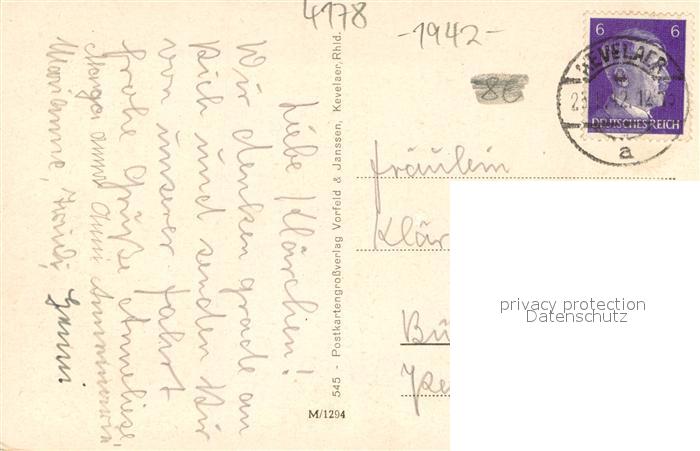 4178
-1942-
86
6 6
KEVELAER
DEUTSCHES REICH
a
Liebe Klärchen!
Wir denken grade an
Dich und senden Dir
von unserer Fahrt
frohe Grüße Anneliese,
Marga Anni
Marianne,
545 - Postkartengroßverlag Vorfeld & Janssen, Kevelaer, Rhld.
M/1294
Fräulein
Klär
Bü
privacy protection
Datenschutz